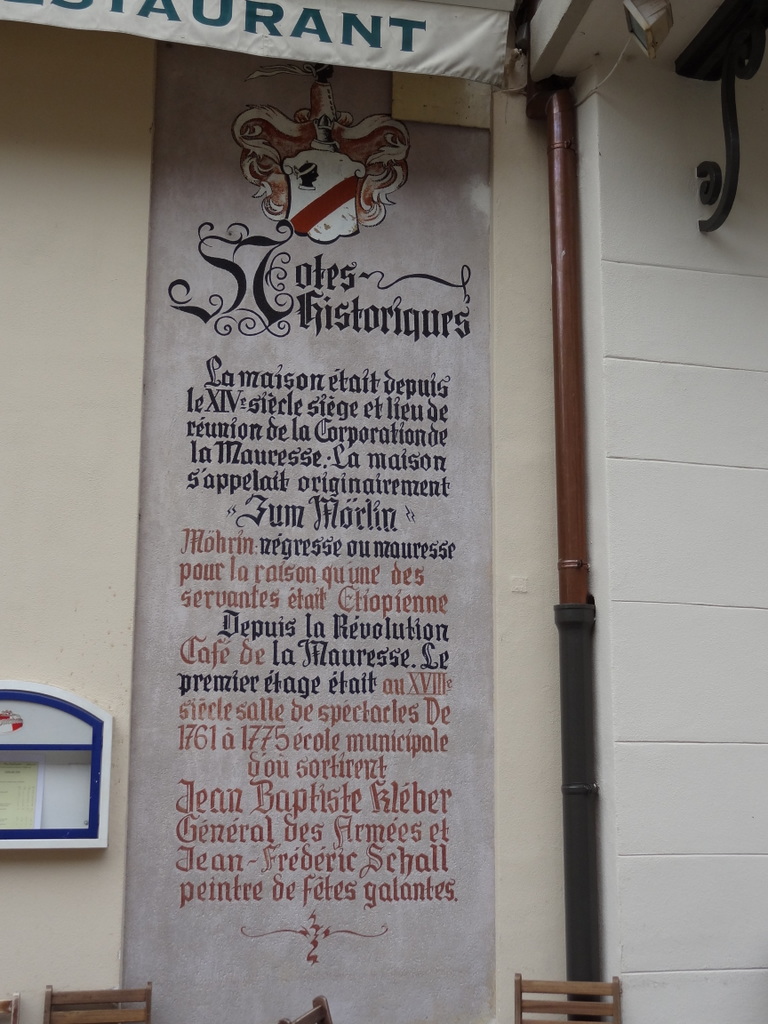 ESTAURANT
Notes-
Historiques
La maison était depuis
le XIVe siècle siège et lieu de
réunion de la Corporation de
la Mauresse. La maison
s'appelait originairement
« Zum Mörlin »
Möhrin: négresse ou mauresse
pour la raison qu'une des
servantes était Etiopienne
Depuis la Révolution
Café de la Mauresse. Le
premier étage était au XVIIIe
siècle salle de spectacles De
1761 à 1775 école municipale
d'où sortirent
Jean Baptiste Kléber
Général des Armées et
Jean-Frédéric Schall
peintre de fêtes galantes.